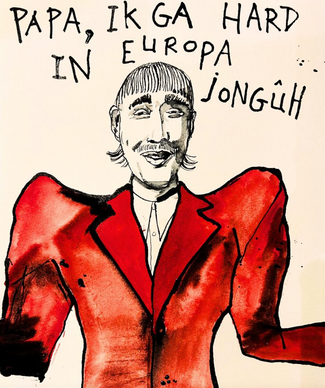 PAPA, IK GA HARD
IN EUROPA
JONGÛH